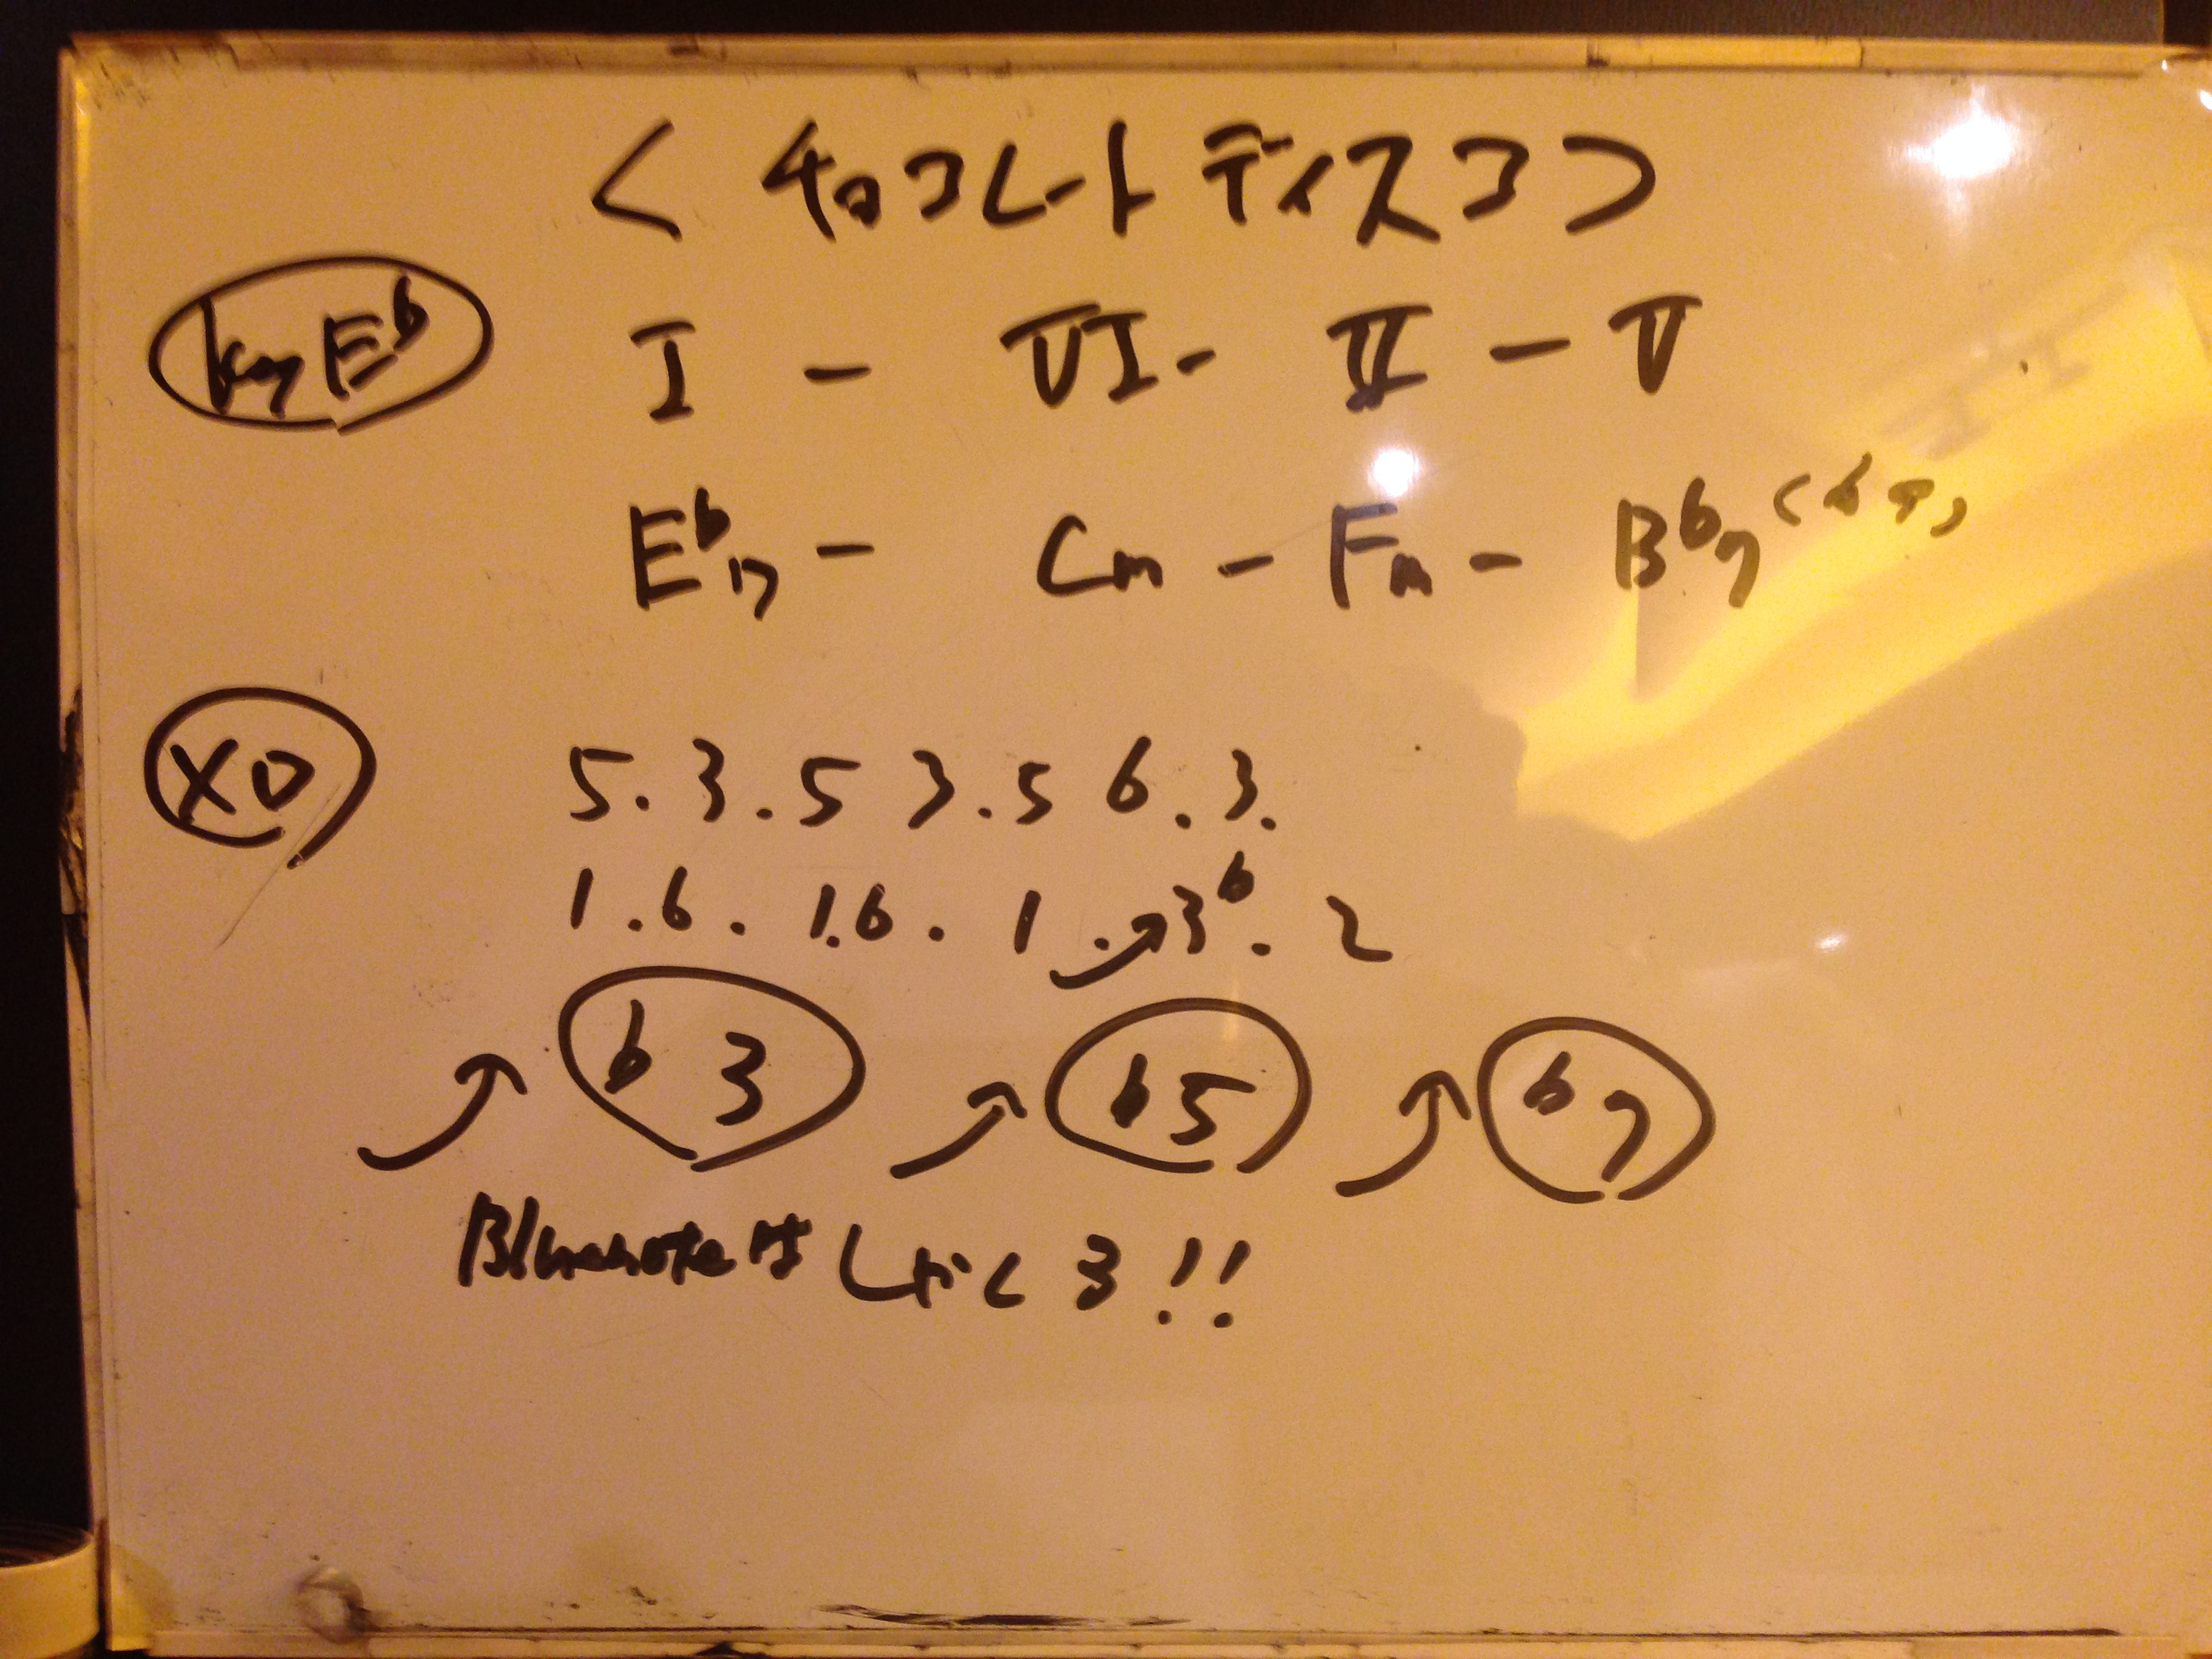 < チョコレートディスコ >
key E♭ I - VI - II - V
E♭M7 - Cm - Fm - B♭7(♭9)
メロ 5.3.5 3.5 6.3.
1.6. 1.6. 1.3♭.2
♭3 ♭5 ♭7
Bluenoteは しゃくる!!